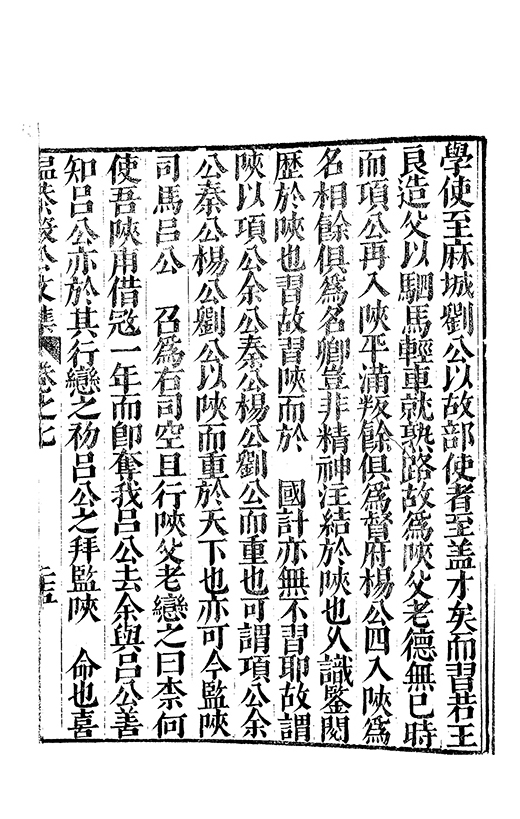 學使至麻城劉公以故部使者至盖才矣而習若王
良造父以駟馬輕車就熟路故爲陜父老德無已時
而項公再入陜平滿叛餘俱爲督府楊公四入陜爲
名相餘俱爲名卿豈非精神注結於陜也久識鑒閱
歷於陜也習故習陜而於　國計亦無不習耶故謂
陜以項公余公秦公楊公劉公而重也可謂項公余
公秦公楊公劉公以陜而重於天下也亦可今監陜
司馬呂公　召爲右司空且行陜父老戀之曰柰何
使吾陜甫借寇一年而卽奪我呂公去余與呂公善
知呂公亦於其行戀之初呂公之拜監陜　命也喜
温恭毅公文集　卷之七　二五